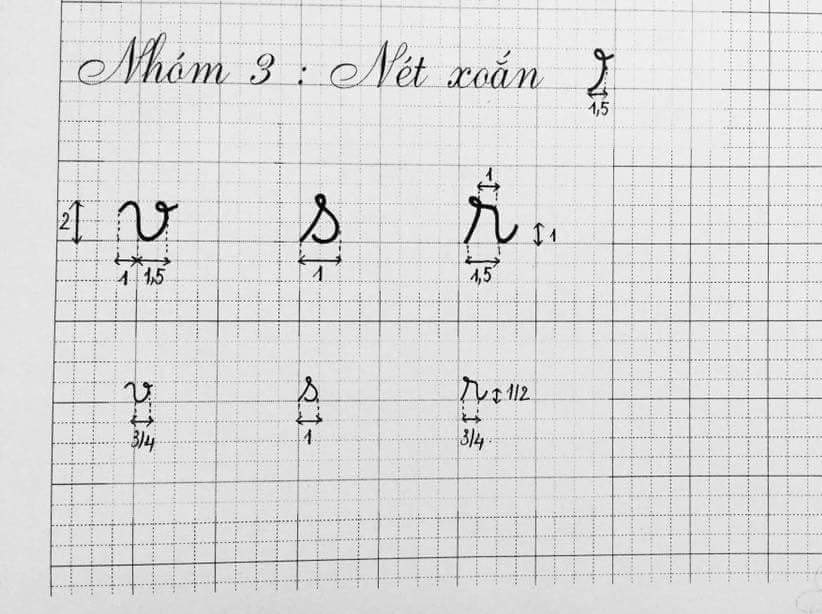 Nhóm 3 : Nét xoắn
1,5
1
2 v s r 1
1 1,5 1 1,5
v s r 1/2
3/4 1 3/4